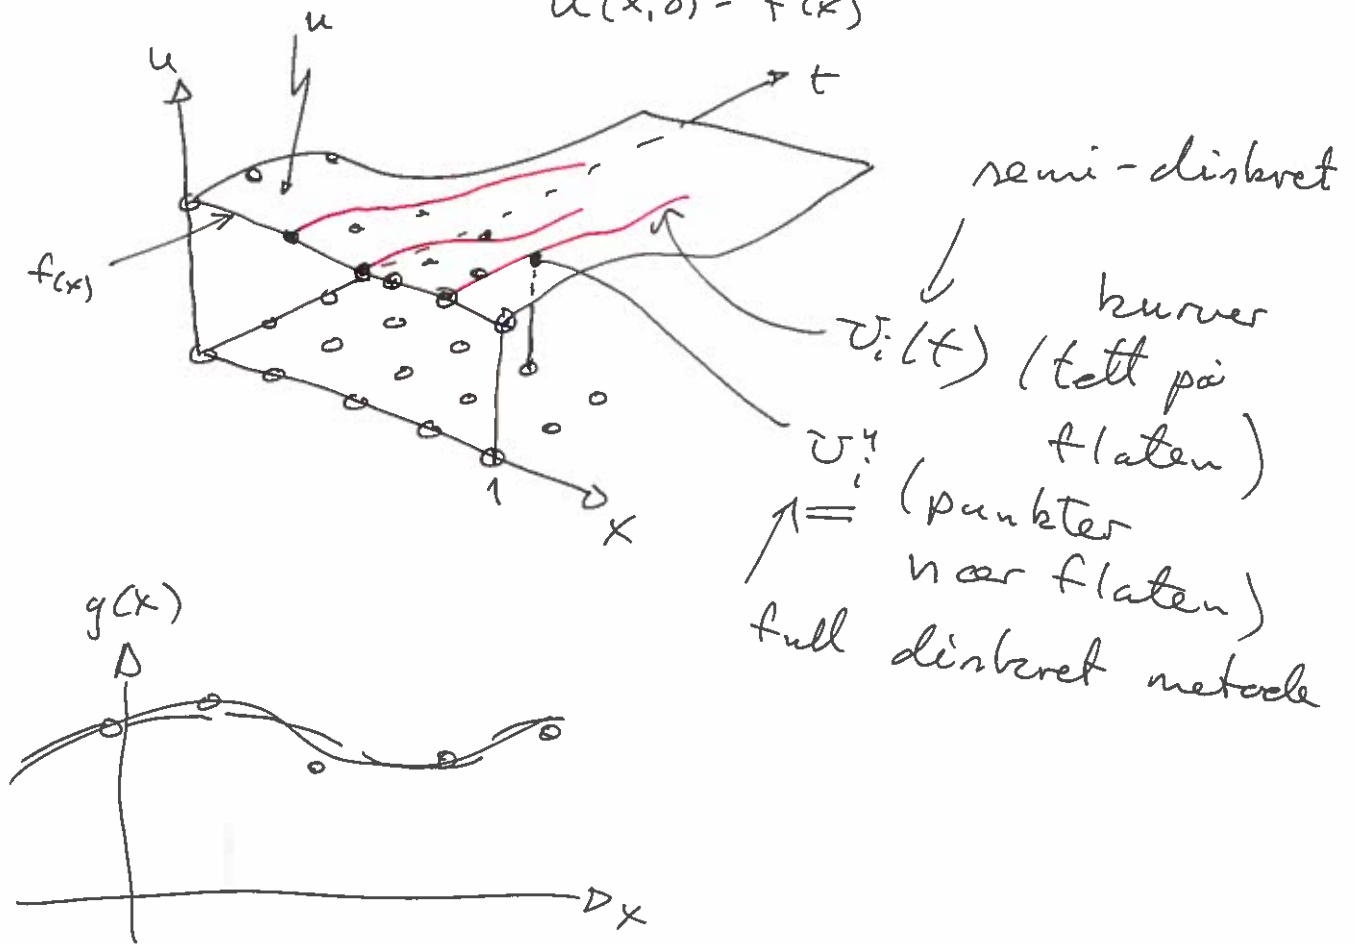 u(x,0) = f(x)
u
u
t
semi-diskret
f(x)
kurver
v_i(t) (tett på
flaten)
v_i^n (punkter
nær flaten)
full diskret metode
1
x
g(x)
x